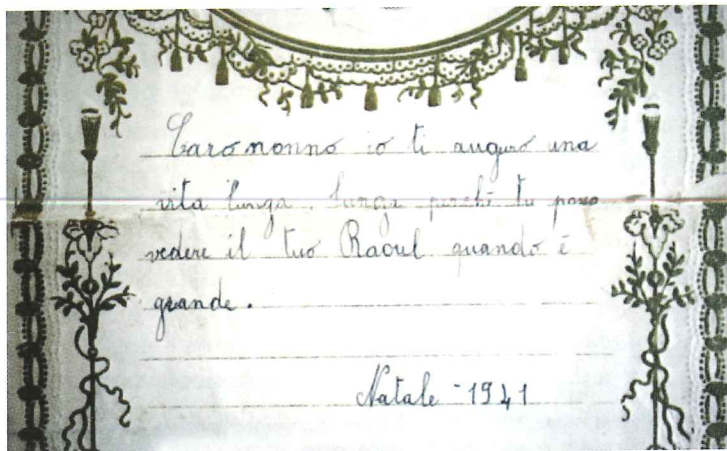 Caro nonno io ti auguro una
vita lunga, lunga perchè tu possa
vedere il tuo Raoul quando è
grande.
Natale - 1941